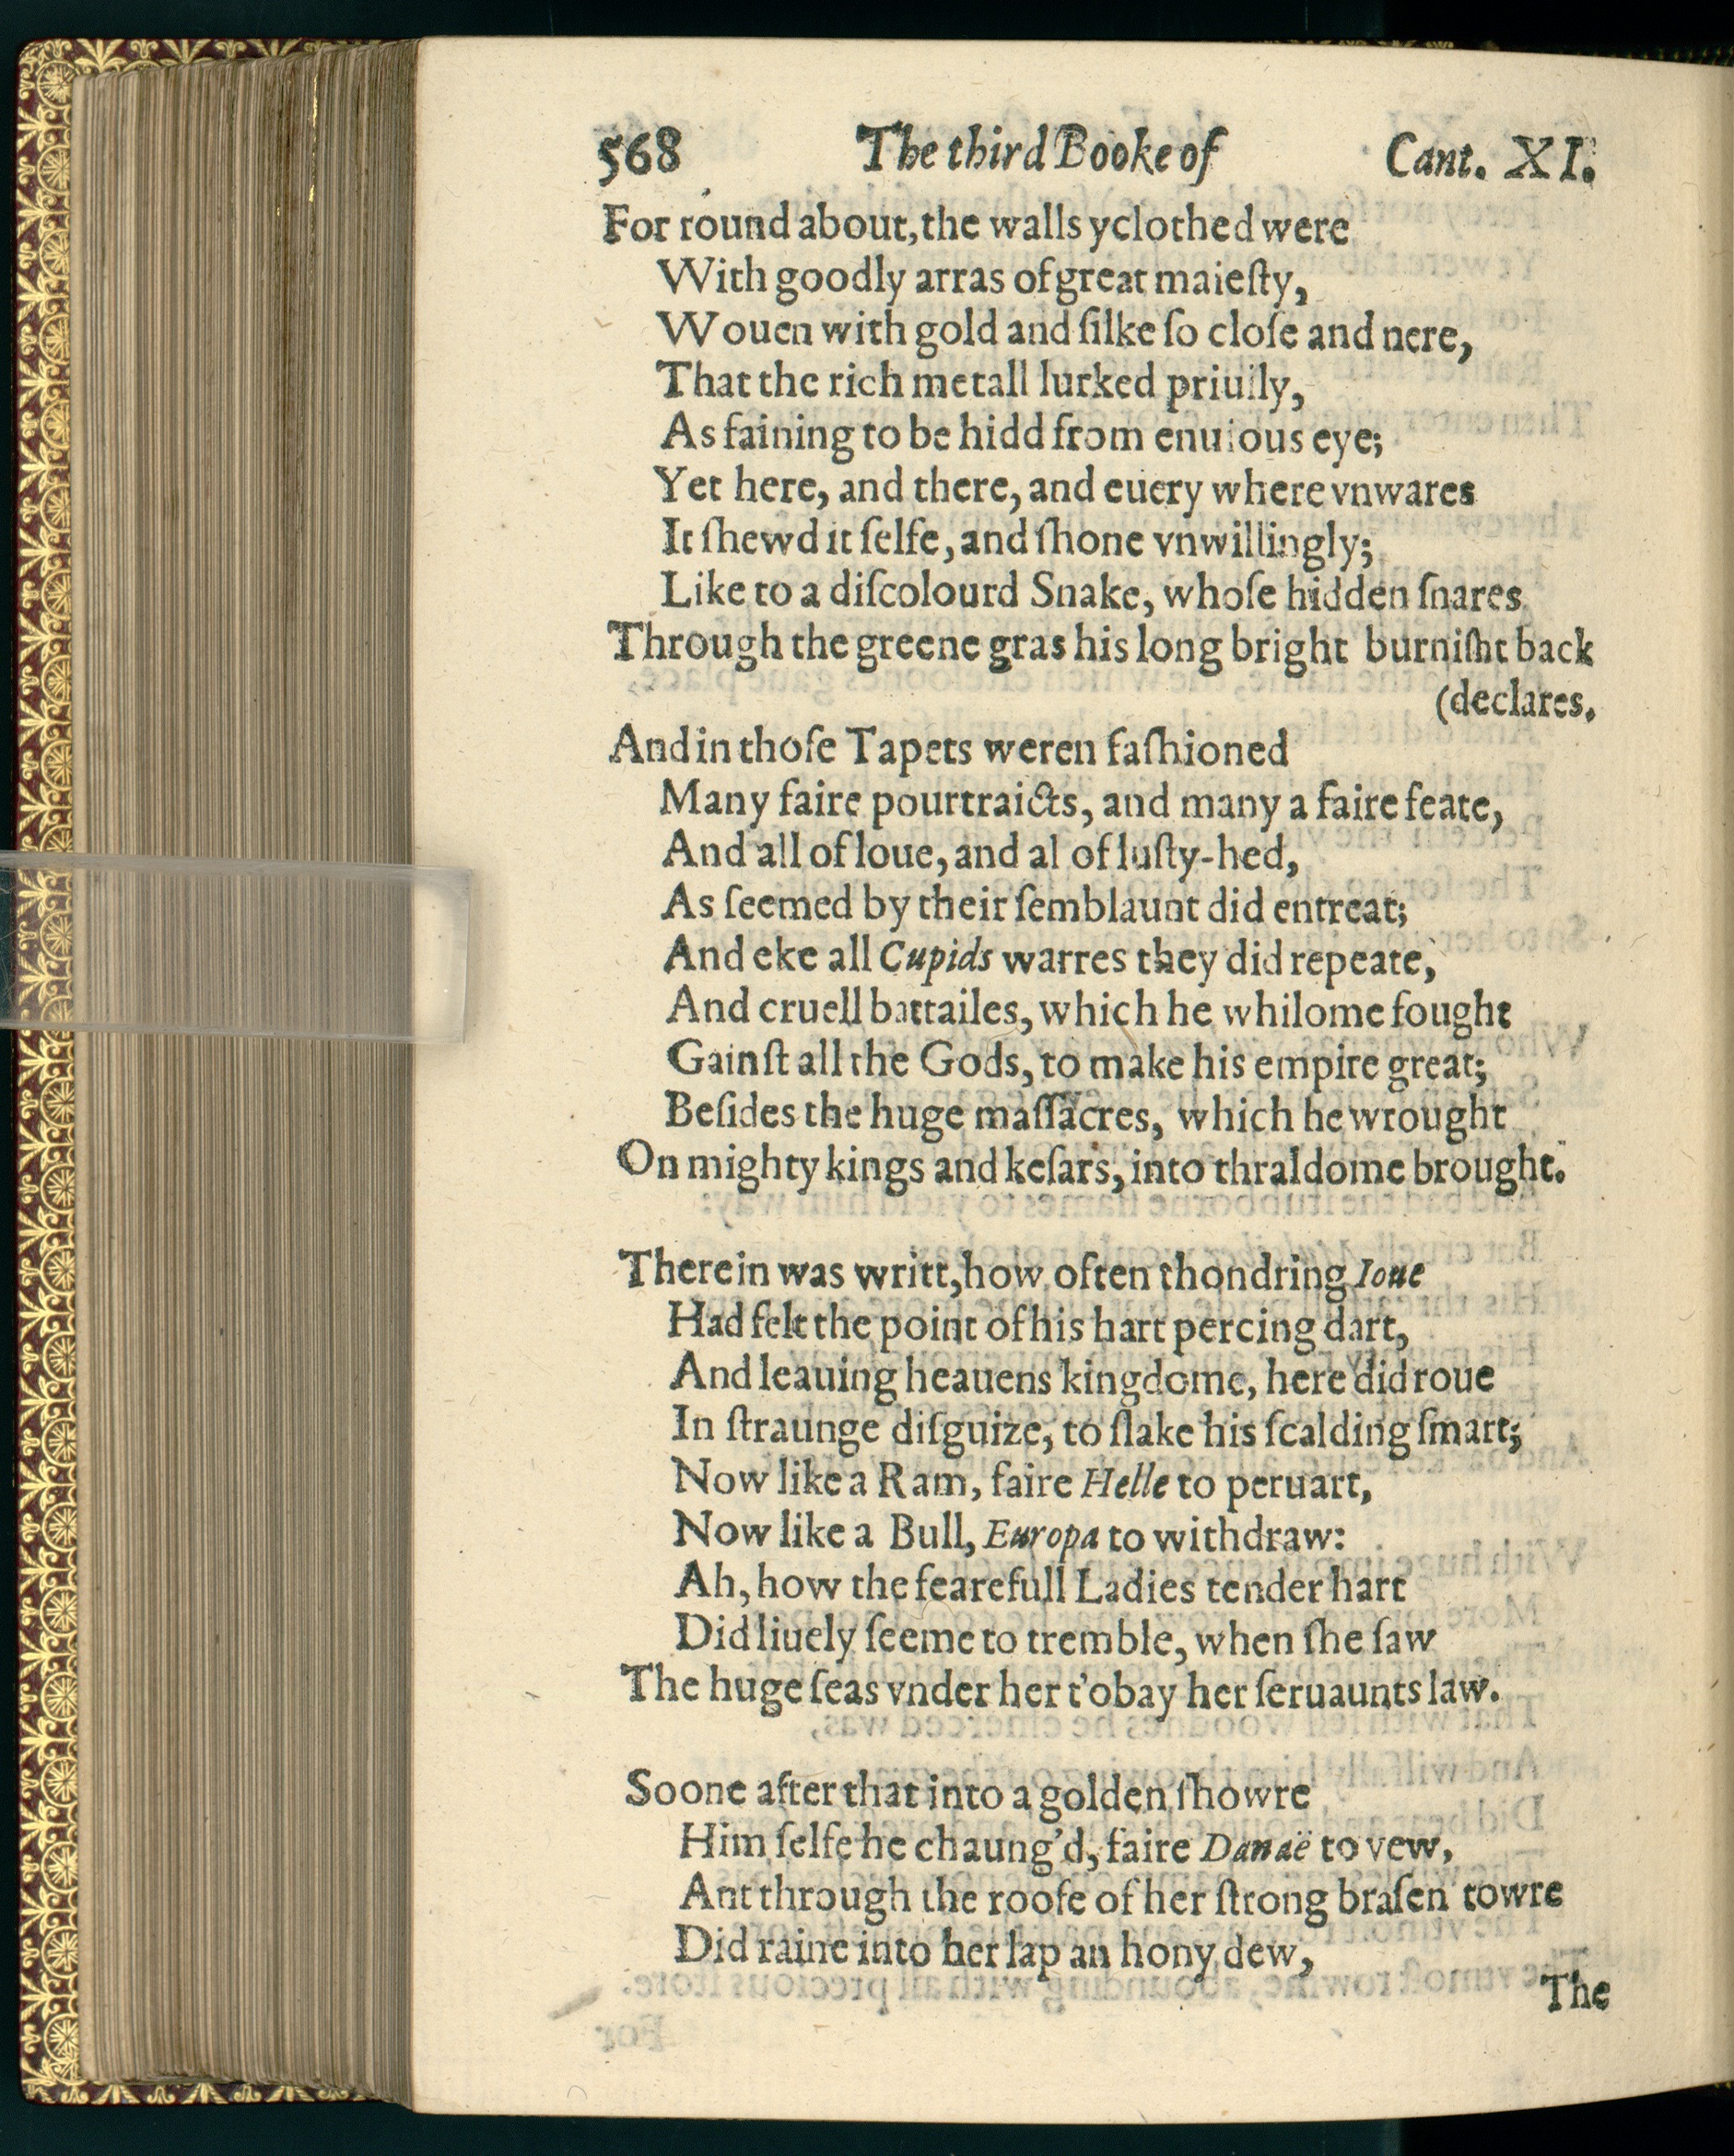 568 The third Booke of Cant. XI.
For round about, the walls yclothed were
With goodly arras of great maieſty,
Wouen with gold and ſilke ſo cloſe and nere,
That the rich metall lurked priuily,
As faining to be hidd from enuious eye;
Yet here, and there, and euery where vnwares
It ſhewd it ſelfe, and ſhone vnwillingly;
Like to a diſcolourd Snake, whoſe hidden ſnares
Through the greene gras his long bright burniſht back
(declares.
And in thoſe Tapets weren faſhioned
Many faire pourtraicts, and many a faire feate,
And all of loue, and al of luſty-hed,
As ſeemed by their ſemblaunt did entreat;
And eke all Cupids warres they did repeate,
And cruell battailes, which he whilome fought
Gainſt all the Gods, to make his empire great;
Beſides the huge maſſacres, which he wrought
On mighty kings and keſars, into thraldome brought.
Therein was writt, how often thondring Ioue
Had felt the point of his hart percing dart,
And leauing heauens kingdome, here did roue
In ſtraunge diſguize, to ſlake his ſcalding ſmart;
Now like a Ram, faire Helle to peruart,
Now like a Bull, Europa to withdraw:
Ah, how the fearefull Ladies tender hart
Did liuely ſeeme to tremble, when ſhe ſaw
The huge ſeas vnder her t'obay her ſeruaunts law.
Soone after that into a golden ſhowre
Him ſelfe he chaung'd, faire Danaë to vew,
Ant through the roofe of her ſtrong braſen towre
Did raine into her lap an hony dew,
The